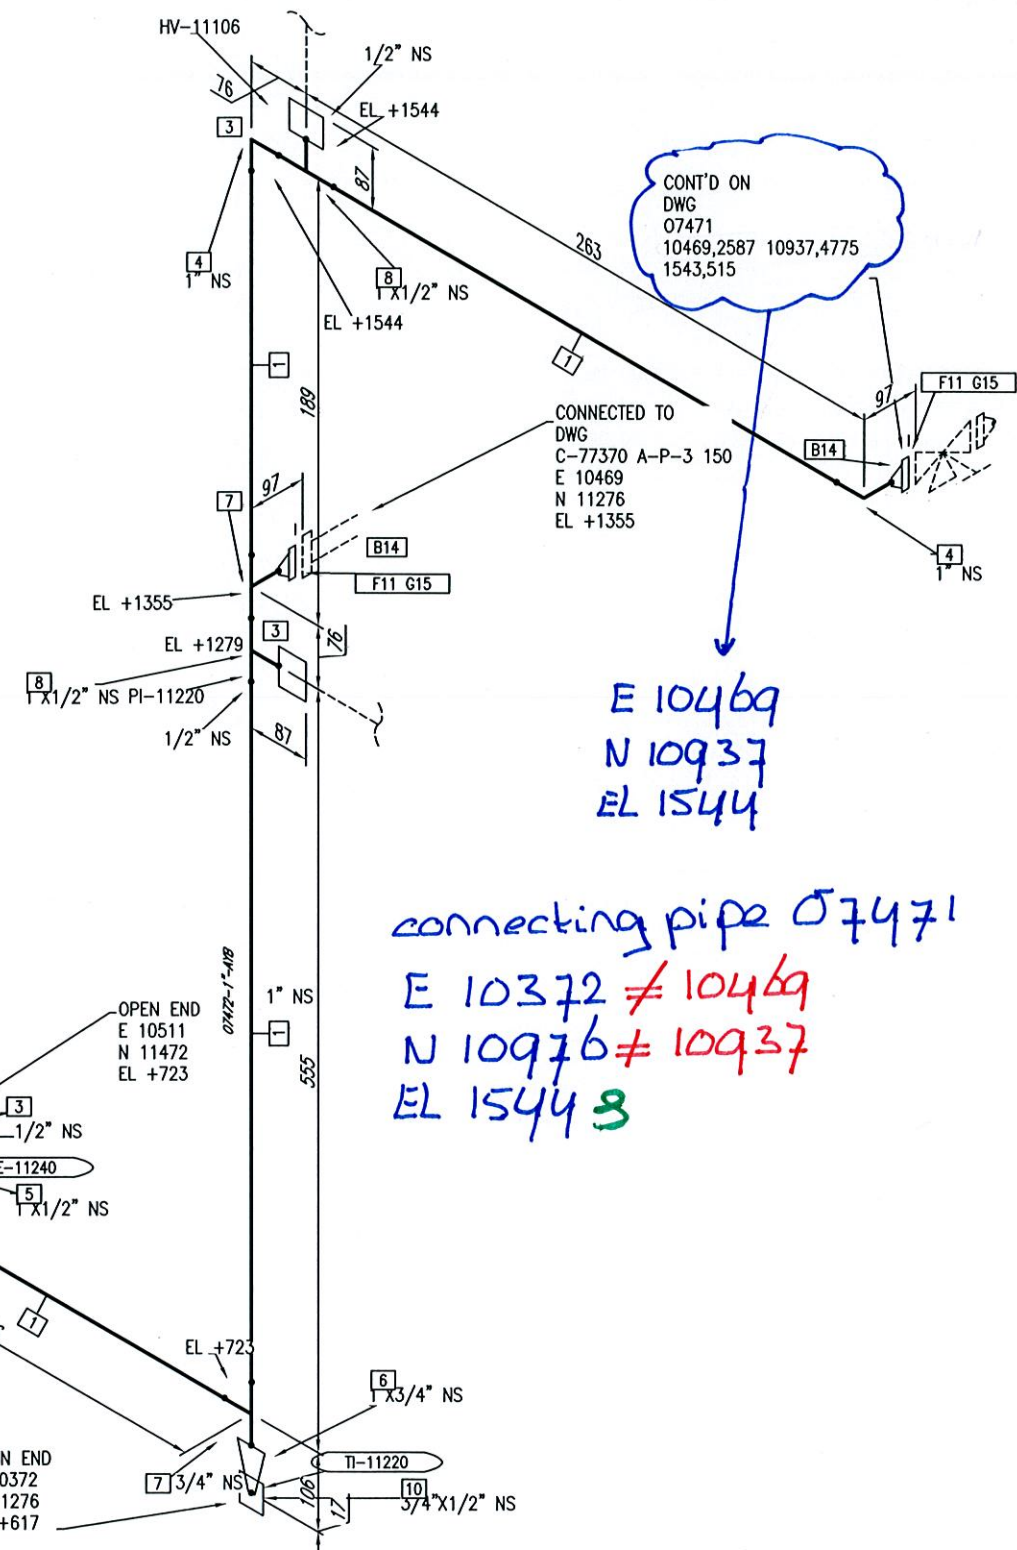 HV-11106
1/2" NS
76
EL +1544
3
87
CONT'D ON
DWG
07471
10469,2587 10937,4775
1543,515
263
4
1" NS
8
1 X1/2" NS
EL +1544
1
1
189
97
F11 G15
CONNECTED TO
DWG
C-77370 A-P-3 150
E 10469
N 11276
EL +1355
B14
7
97
B14
F11 G15
4
1" NS
EL +1355
EL +1279
3
76
8
1 X1/2" NS PI-11220
1/2" NS
87
E 10469
N 10937
EL 1544
connecting pipe 07471
E 10372 ≠ 10469
N 10976 ≠ 10937
EL 1544
07472-1"-A1B
1" NS
OPEN END
E 10511
N 11472
EL +723
1
555
3
1/2" NS
E-11240
5
1 X1/2" NS
1
EL +723
6
1 X3/4" NS
N END
0372
1276
+617
7
3/4" NS
TI-11220
106
17
10
3/4"X1/2" NS